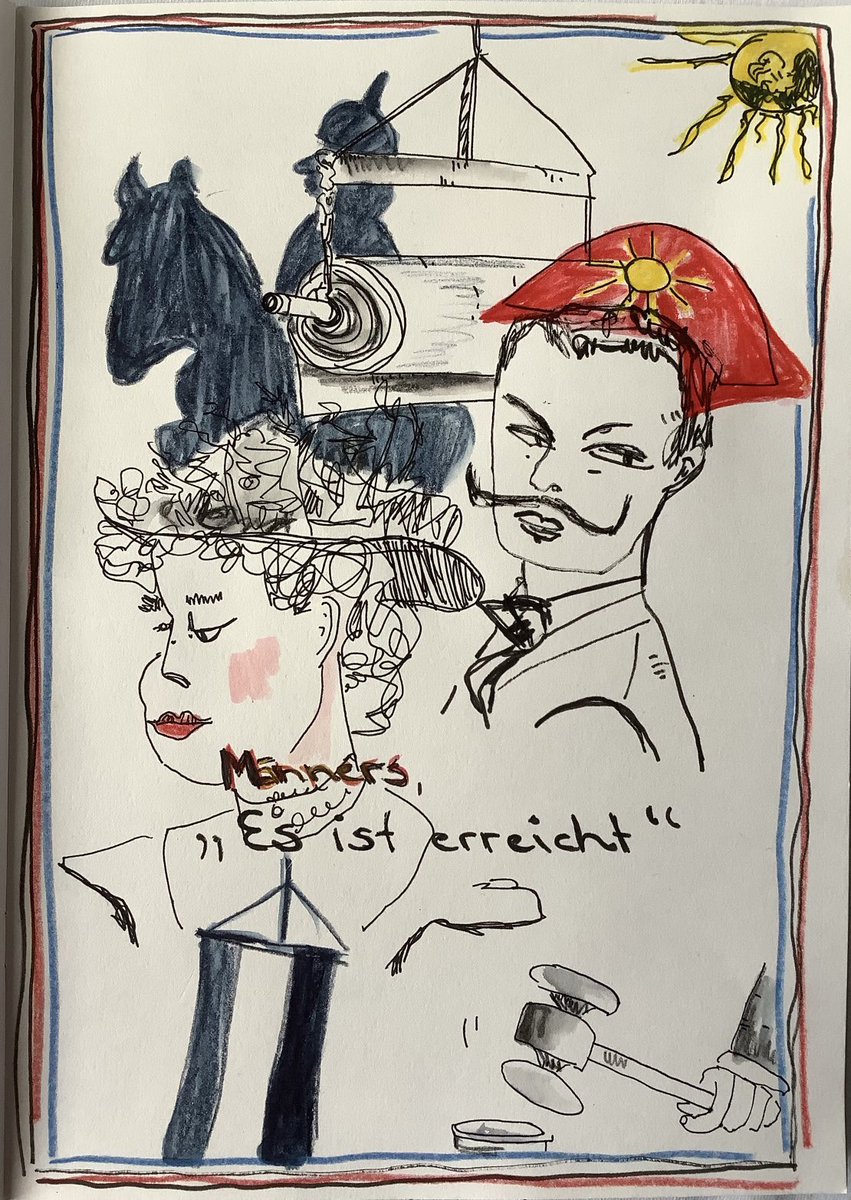 Männers,
„Es ist erreicht“